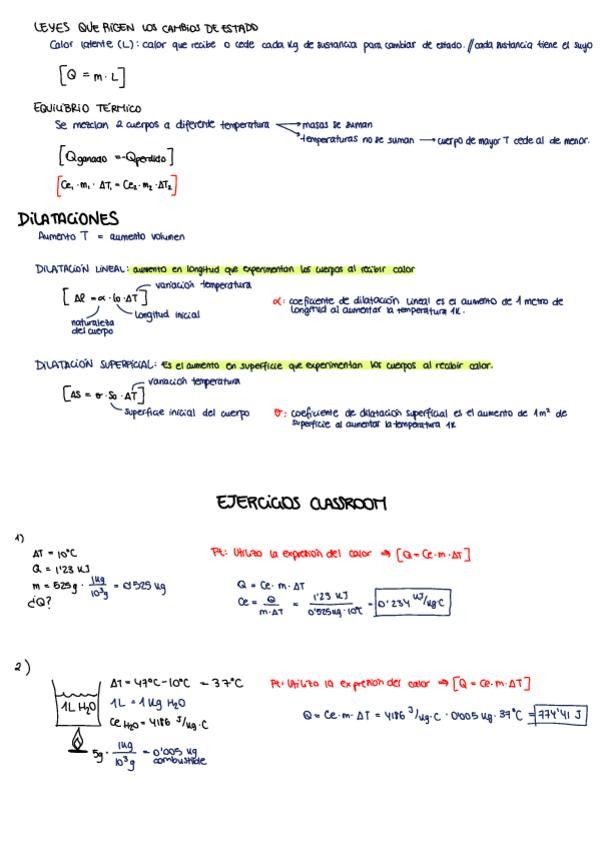 LEYES QUE RIGEN LOS CAMBIOS DE ESTADO
Calor latente (L): calor que recibe o cede cada kg de sustancia para cambiar de estado. // cada sustancia tiene el suyo
[Q = m · L]
EQUILIBRIO TÉRMICO
Se mezclan 2 cuerpos a diferente temperatura → masas se suman
→ temperaturas no se suman → cuerpo de mayor T cede al de menor.
[Qganado = -Qperdido]
[Ce₁ · m₁ · ΔT₁ = Ce₂ · m₂ · ΔT₂]
DILATACIONES
Aumento T = aumento volumen
DILATACIÓN LINEAL: aumento en longitud que experimentan los cuerpos al recibir calor
variación temperatura
[Δl = α · l₀ · ΔT]
longitud inicial
naturaleza
del cuerpo
α: coeficiente de dilatación lineal es el aumento de 1 metro de
longitud al aumentar la temperatura 1K.
DILATACIÓN SUPERFICIAL: es el aumento en superficie que experimentan los cuerpos al recibir calor.
variación temperatura
[ΔS = σ · S₀ · ΔT]
superficie inicial del cuerpo
σ: coeficiente de dilatación superficial es el aumento de 1m² de
superficie al aumentar la temperatura 1K
EJERCICIOS CLASSROOM
1)
ΔT = 10°C
Q = 1'23 KJ
m = 525g · 1kg / 10³g = 0'525 kg
¿Q?
Pt: Utilizo la expresión del calor → [Q = Ce · m · ΔT]
Q = Ce · m · ΔT
Ce = Q / m · ΔT = 1'23 KJ / 0'525kg · 10°C = 0'234 KJ/kg C
2)
1L H₂O
ΔT = 47°C - 10°C = 37°C
1L = 1 kg H₂O
Ce H₂O = 4186 J/kg · C
5g · 1kg / 10³g = 0'005 kg
combustible
Pt: Utilizo la expresión del calor → [Q = Ce · m · ΔT]
Q = Ce · m · ΔT = 4186 J/kg · C · 0'005 kg · 37°C = 774'41 J